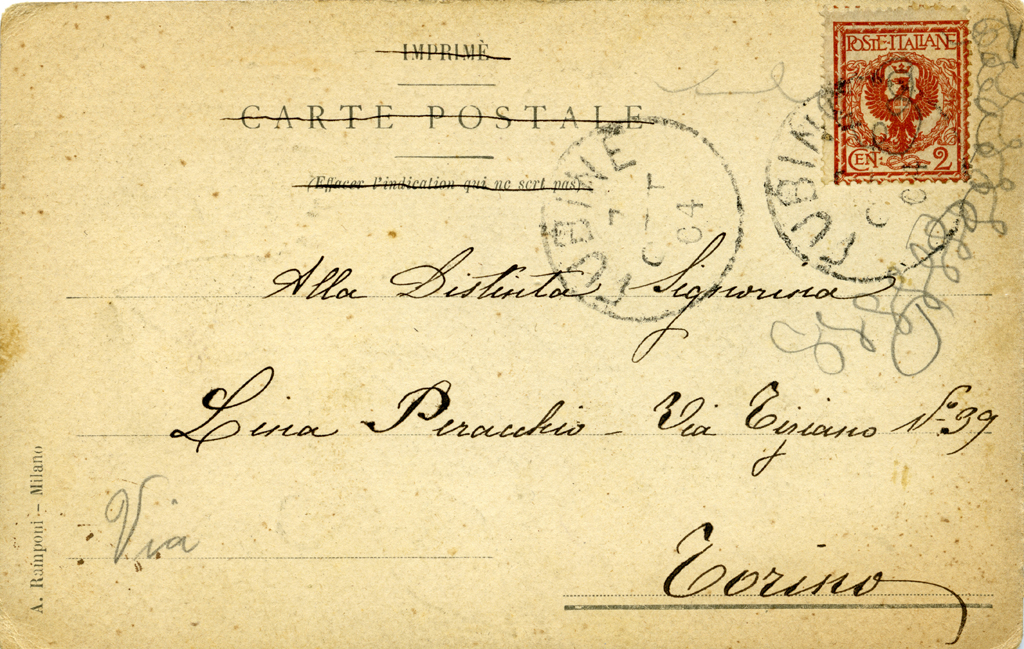 IMPRIMÉ
CARTE POSTALE
(Effacer l'indication qui ne sert pas)
POSTE·ITALIANE
CEN: 2
FUBINE
7
OTT
04
FUBINE
04
Alla Distinta Signorina
Lina Peracchio - Via Tiziano No. 39
Via
Torino
A. Ramponi – Milano